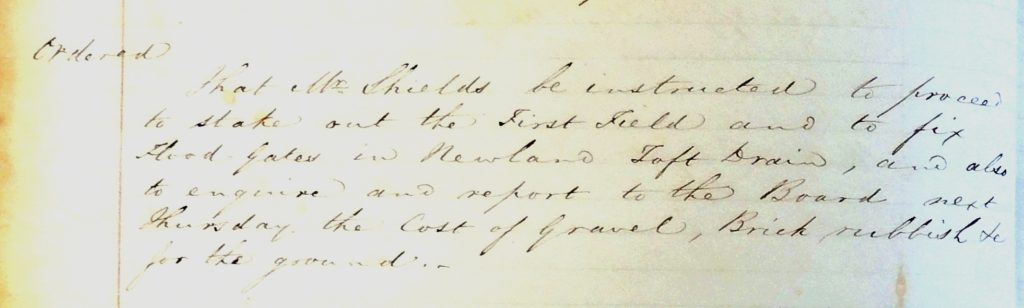 Ordered
That Mr. Shields be instructed to proceed
to stake out the First Field and to fix
Flood-Gates in Newland Toft Drain, and also
to enquire and report to the Board next
Thursday the Cost of Gravel, Brick rubbish &c
for the ground.-